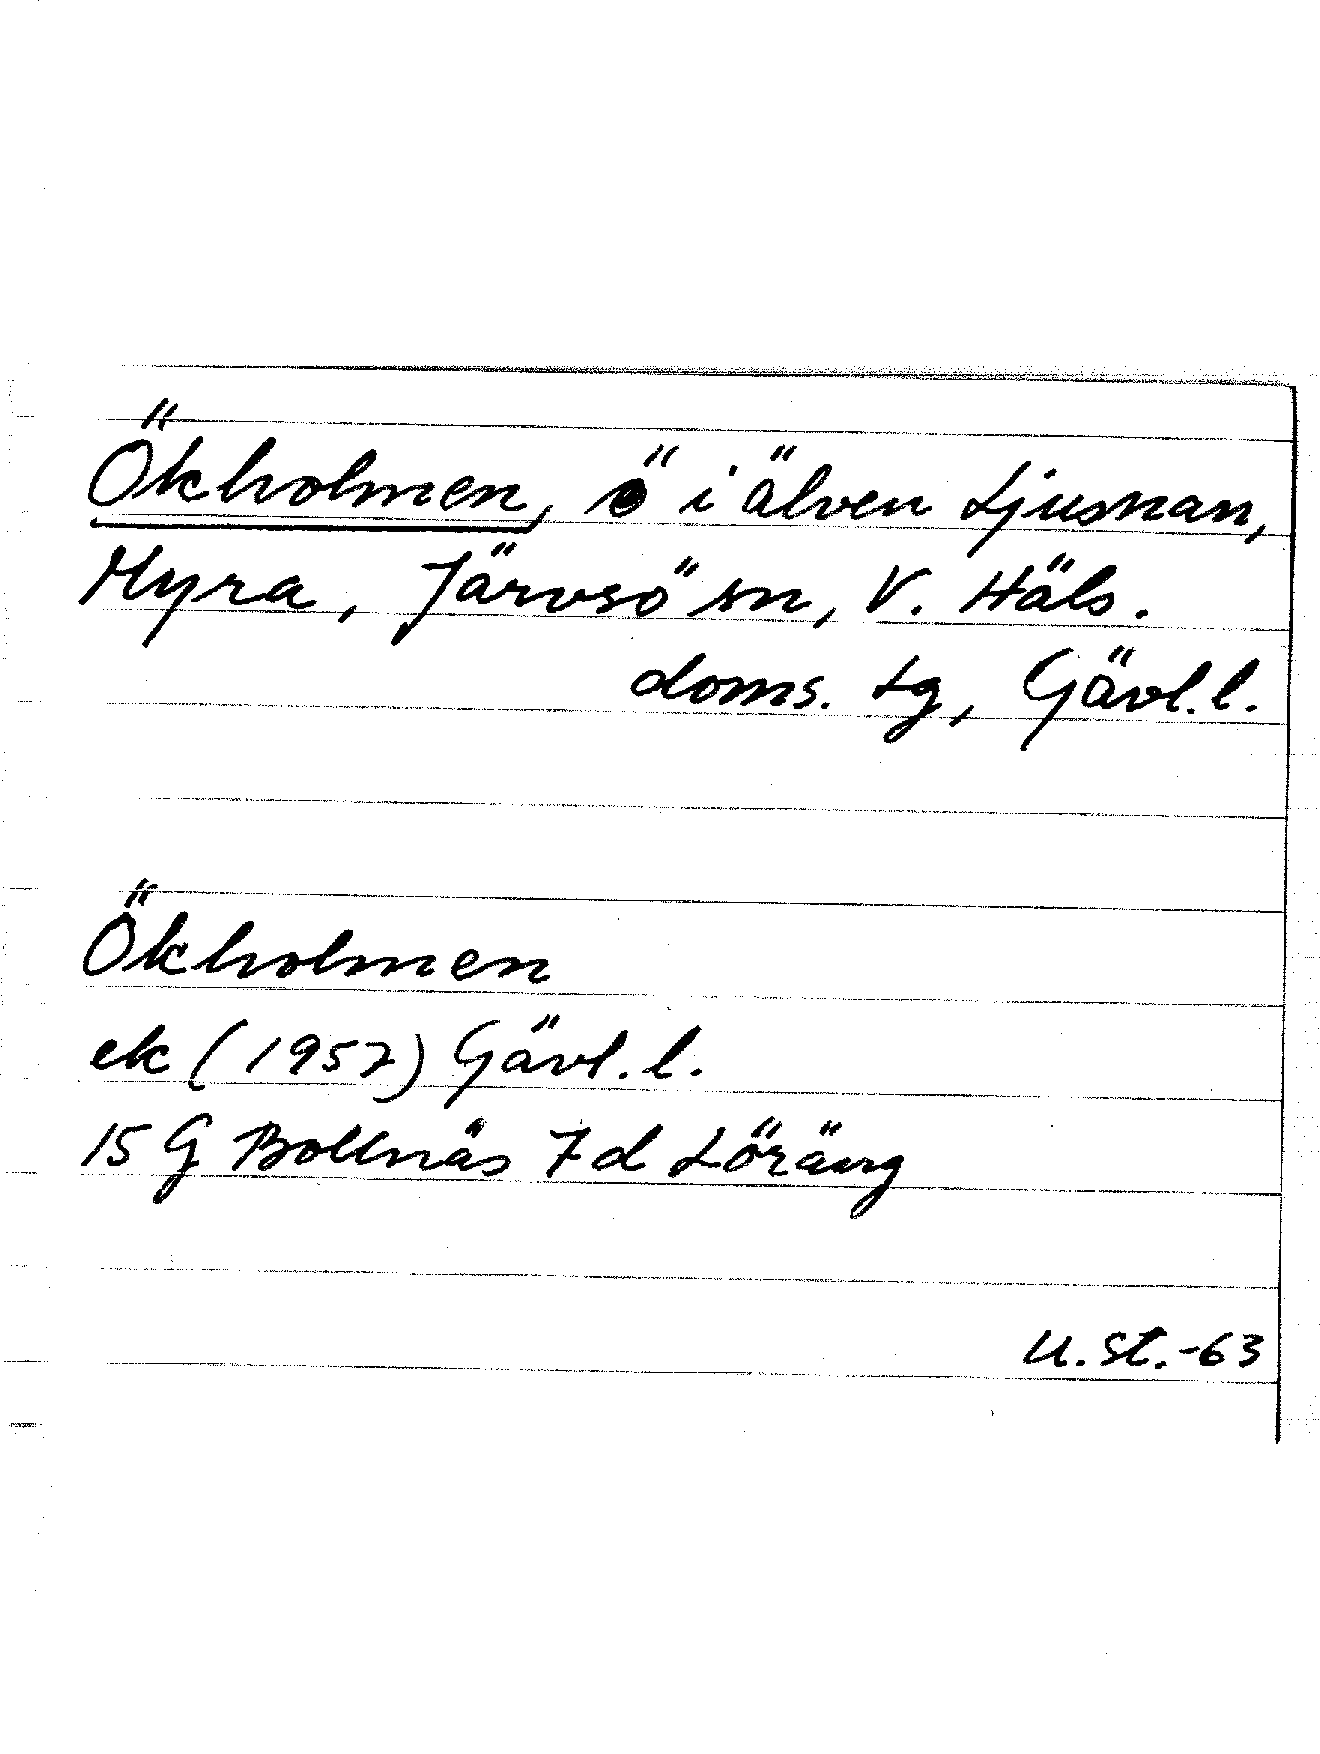 Ökholmen, ö i älven Ljusnan,
Myra, Järvsö sn, V. Häls.
doms. tg, Gävl. l.
Ökholmen
ek (1957) Gävl. l.
15 G Bollnäs 7d Löräng
U. St.-63